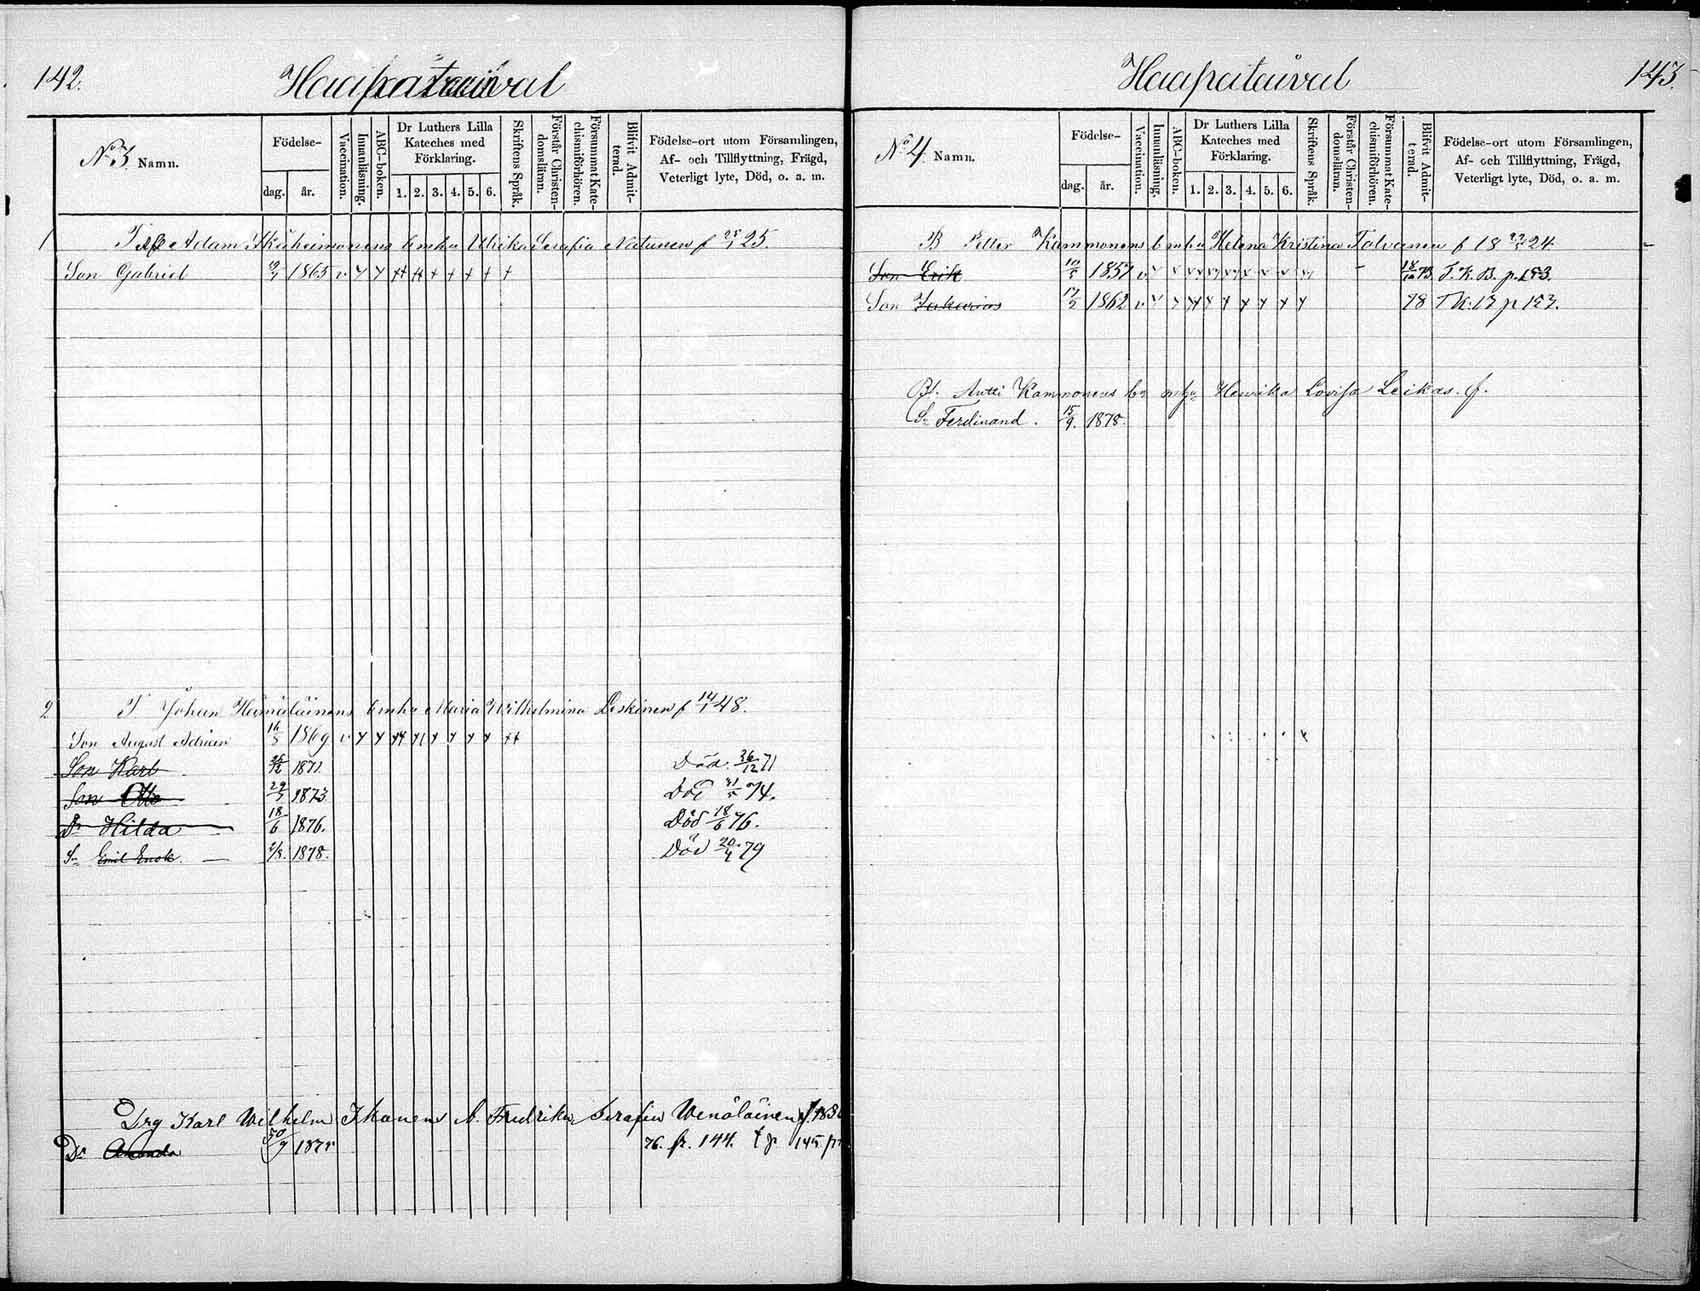 142.
Haapataival
No 3. Namn.
Födelse-
dag.
år.
Vaccination.
Innanläsning.
ABC-boken.
Dr Luthers Lilla
Kateches med
Förklaring.
1. 2. 3. 4. 5. 6.
Skriftens Språk.
Förstår Christen-
domslämn.
Försummat Kate-
chismiförhören.
Blifvit Admit-
terad.
Födelse-ort utom Församlingen,
Af- och Tillflyttning, Frägd,
Veterligt lyte, Död, o. a. m.
1 Adam Ulrika Serafia Natunen f 25.
Son Gabriel 1865 v
2 T Johan Hämäläinens Enka Maria Wilhelmina Leskinen f 14/1 48.
Son August Adrian 16/5 1869 v
Son Karl 1871 Död 26/12 71
Son Otto 1873 Död 74.
Dr Hilda 18/6 1876. Död 18/6 76.
Sn Emil Enok. 1878. Död 20/4 79
Drg Karl Wilhelm Ikonens h. Fredrika Serafia Wenäläinen
Dr Amanda 1875 76. fr. 144. t p 145
143.
Haapataival
No 4. Namn.
Födelse-
dag.
år.
Vaccination.
Innanläsning.
ABC-boken.
Dr Luthers Lilla
Kateches med
Förklaring.
1. 2. 3. 4. 5. 6.
Skriftens Språk.
Förstår Christen-
domslämn.
Försummat Kate-
chismiförhören.
Blifvit Admit-
terad.
Födelse-ort utom Församlingen,
Af- och Tillflyttning, Frägd,
Veterligt lyte, Död, o. a. m.
B Petter Kammonens Enka Helena Kristina Talvanen f 18 24.
Son Erik 10/5 1857 v 73. T. K. B. p. 153.
Son Zakarias 17/2 1862 v 78 T K. B p 153.
Antti Kammonens Henrika Lovisa Leikas. f.
Sn Ferdinand. 15/9. 1878.